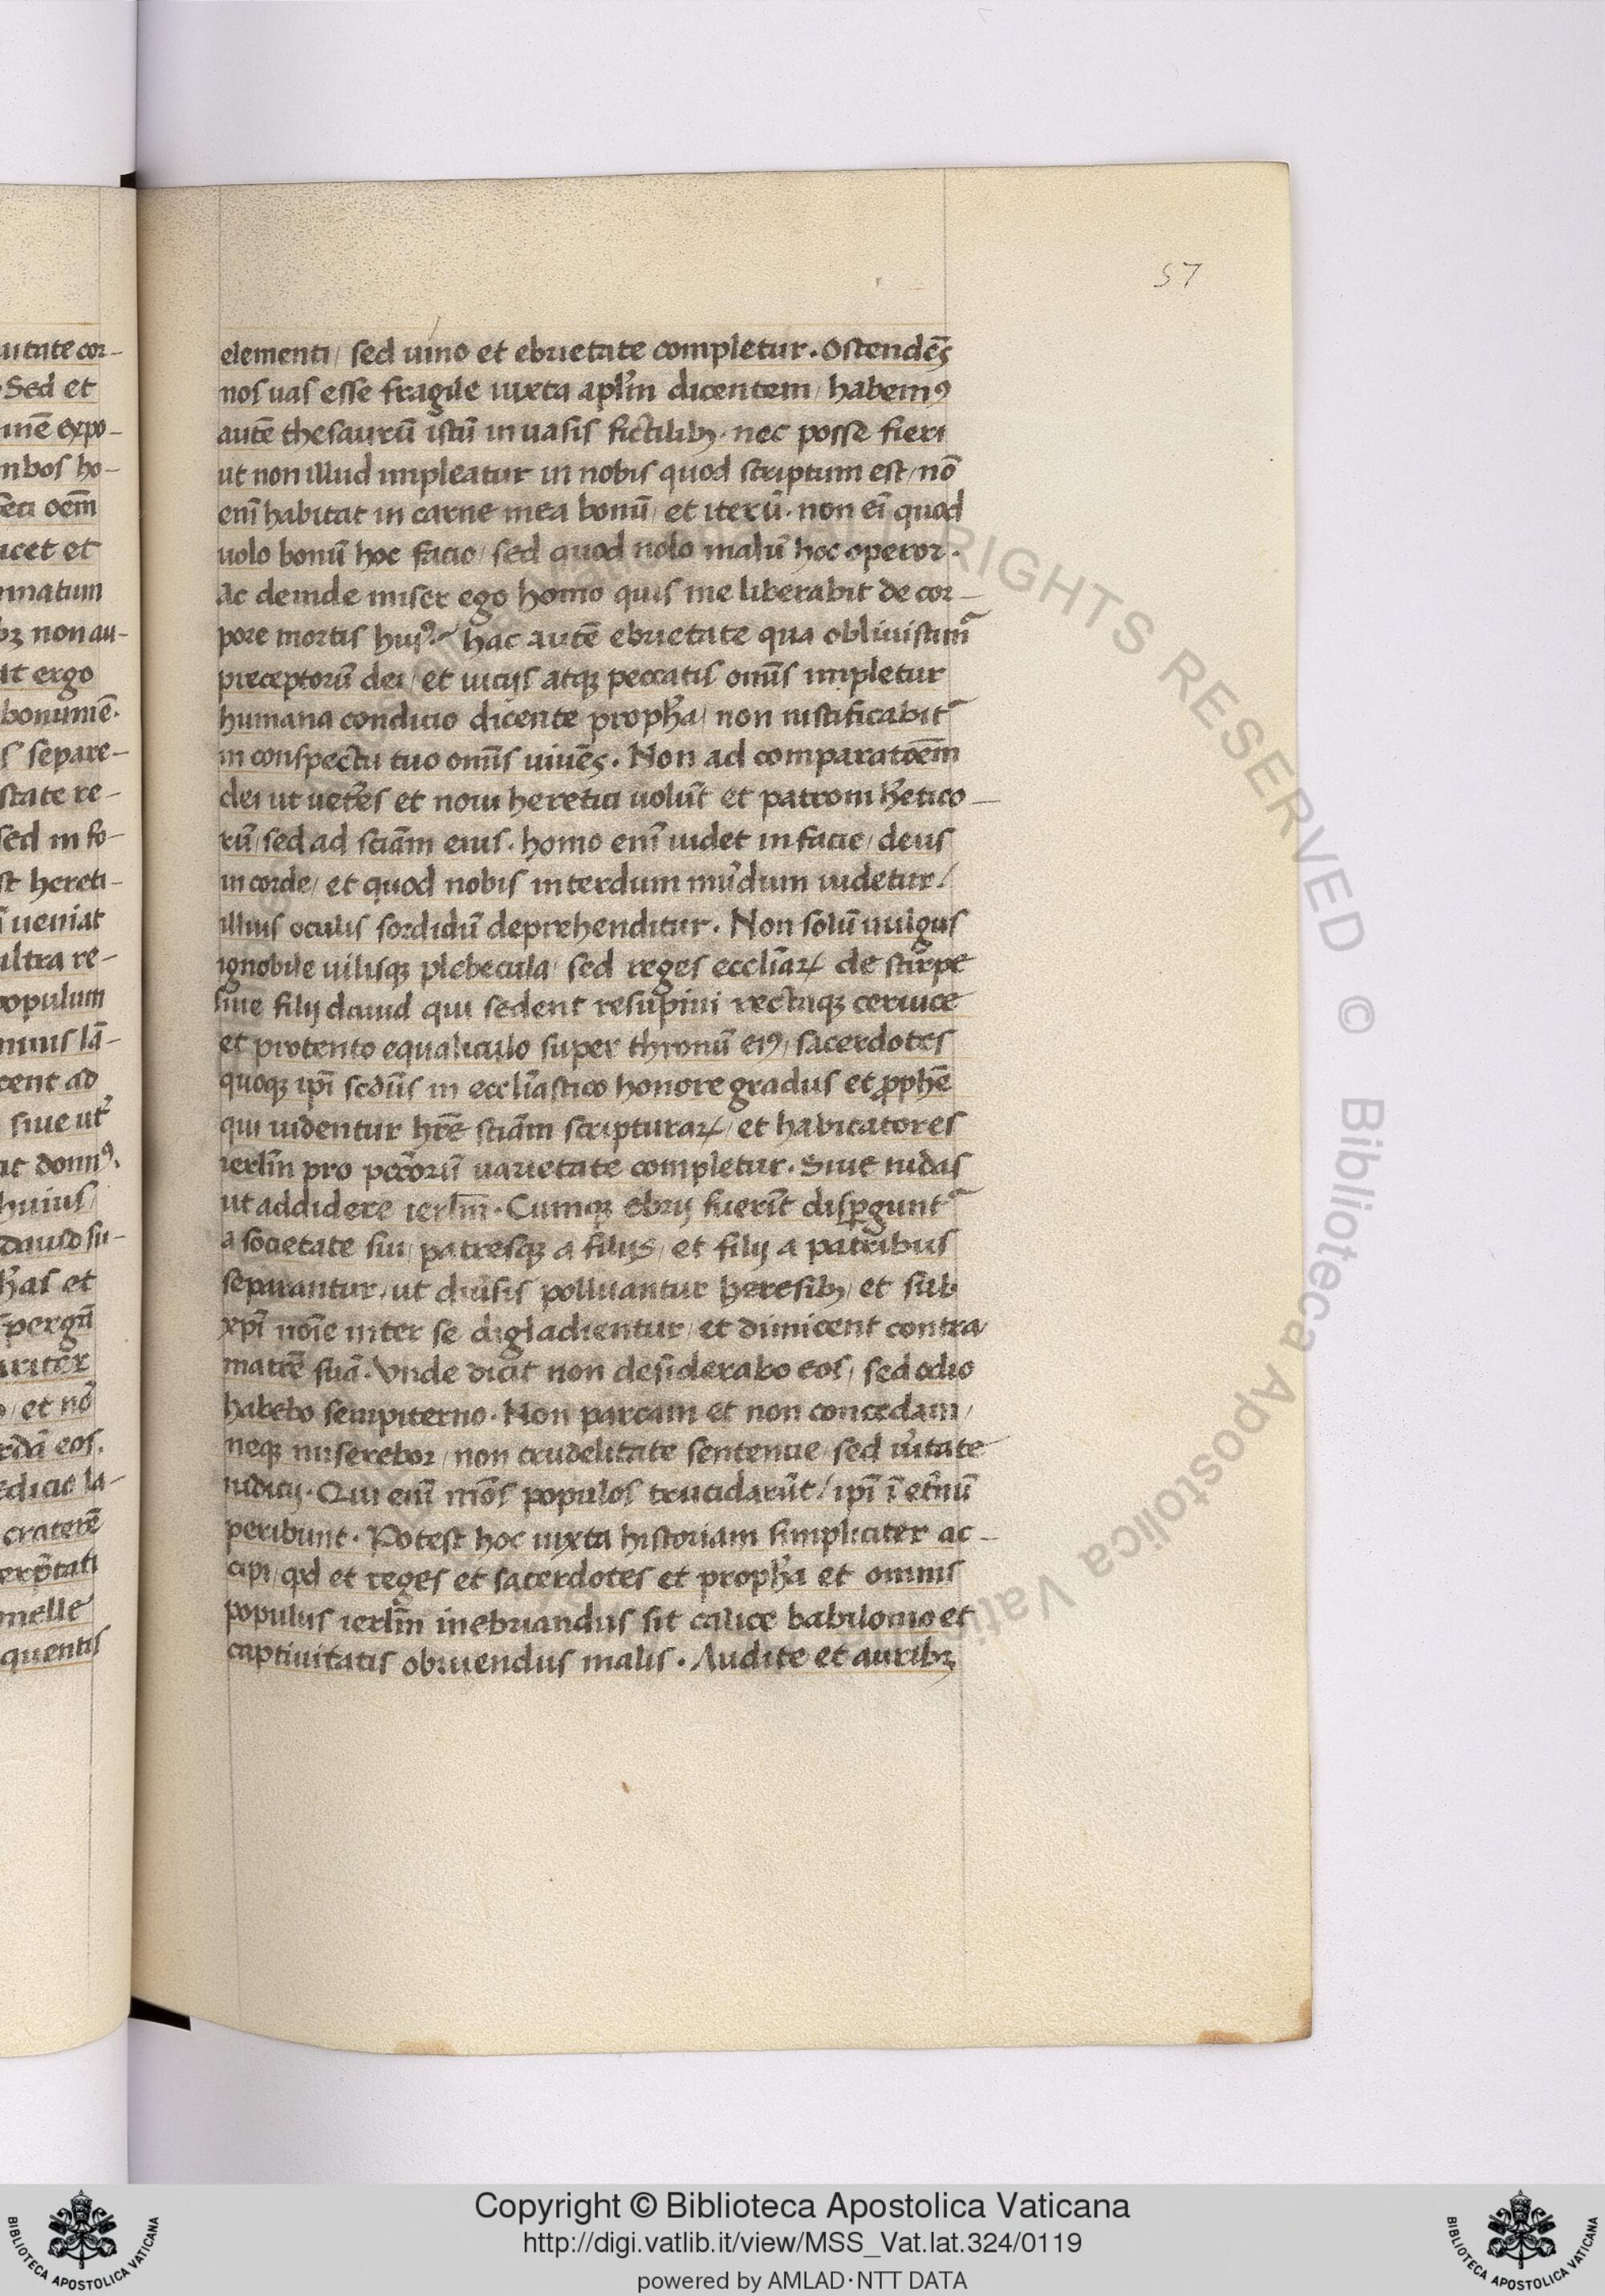 57
elementi / sed uino et ebrietate completur. Ostendēs
nos uas esse fragile iuxta aplm̄ dicentem / habemꝰ
autē thesaurū istū in uasis fictilibꝫ. nec posse fieri
ut non illud impleatur in nobis quod scriptum est / nō
enī habitat in carne mea bonū / et iterū. non eī quod
uolo bonū hoc facio / sed quod nolo malū hoc operor.
Ac deinde miser ego homo quis me liberabit de cor-
pore mortis huiꝰ? hac autē ebrietate qua obliuiscim̄
preceptorū dei / et uicijs atqꝫ peccatis omīs impletur
humana condicio dicente propha̅ / non iustificabit̄
in conspectu tuo omīs uiuēs. Non ad comparatōem
dei ut uetēs et noui heretici uolūt et patroni hētico-
rū / sed ad sciām eius. homo enī uidet in facie / deus
in corde / et quod nobis interdum mūdum uidetur /
illius oculis sordidū deprehenditur. Non solū uulgus
ignobile uilisqꝫ plebecula / sed reges eccliāꝝ de stirpe
siue filij dauid qui sedent resupini rectaqꝫ ceruice
et protento equaliculo super thronū eiꝰ / sacerdotes
quoqꝫ ipī scd̄us in eccliāstico honore gradus et ꝓphē
qui uidentur hr̄e sciām scripturaꝝ / et habitatores
ierlm̄ pro pccōrū uarietate completur. Siue iudas
ut addidere ierlm̄. Cumqꝫ ebrij fuerīt disꝑgunt̄
a societate sui / patresqꝫ a filijs / et filij a patribus
separantur / ut diūsis polluantur heresibꝫ / et sub
xpī noīe inter se digladientur / et dimicent contra
matrē suā. Vnde dicit non desiderabo eos / sed odio
habebo sempiterno. Non parcam et non concedam /
neqꝫ miserebor / non crudelitate sentencie / sed ūitate
iudicij. Qui enī mōs populos trucidarūt / ipī ī et̄nū
peribunt. Potest hoc iuxta historiam simpliciter ac-
cipi / qd̄ et reges et sacerdotes et propha̅ et omnis
populus ierlm̄ inebriandus sit calice babilonio et
captiuitatis obruendus malis. Audite et auribꝫ
RIGHTS RESERVED © Biblioteca Apostolica Vaticana
Copyright © Biblioteca Apostolica Vaticana
http://digi.vatlib.it/view/MSS_Vat.lat.324/0119
powered by AMLAD·NTT DATA
BIBLIOTECA APOSTOLICA VATICANA
BIBLIOTECA APOSTOLICA VATICANA